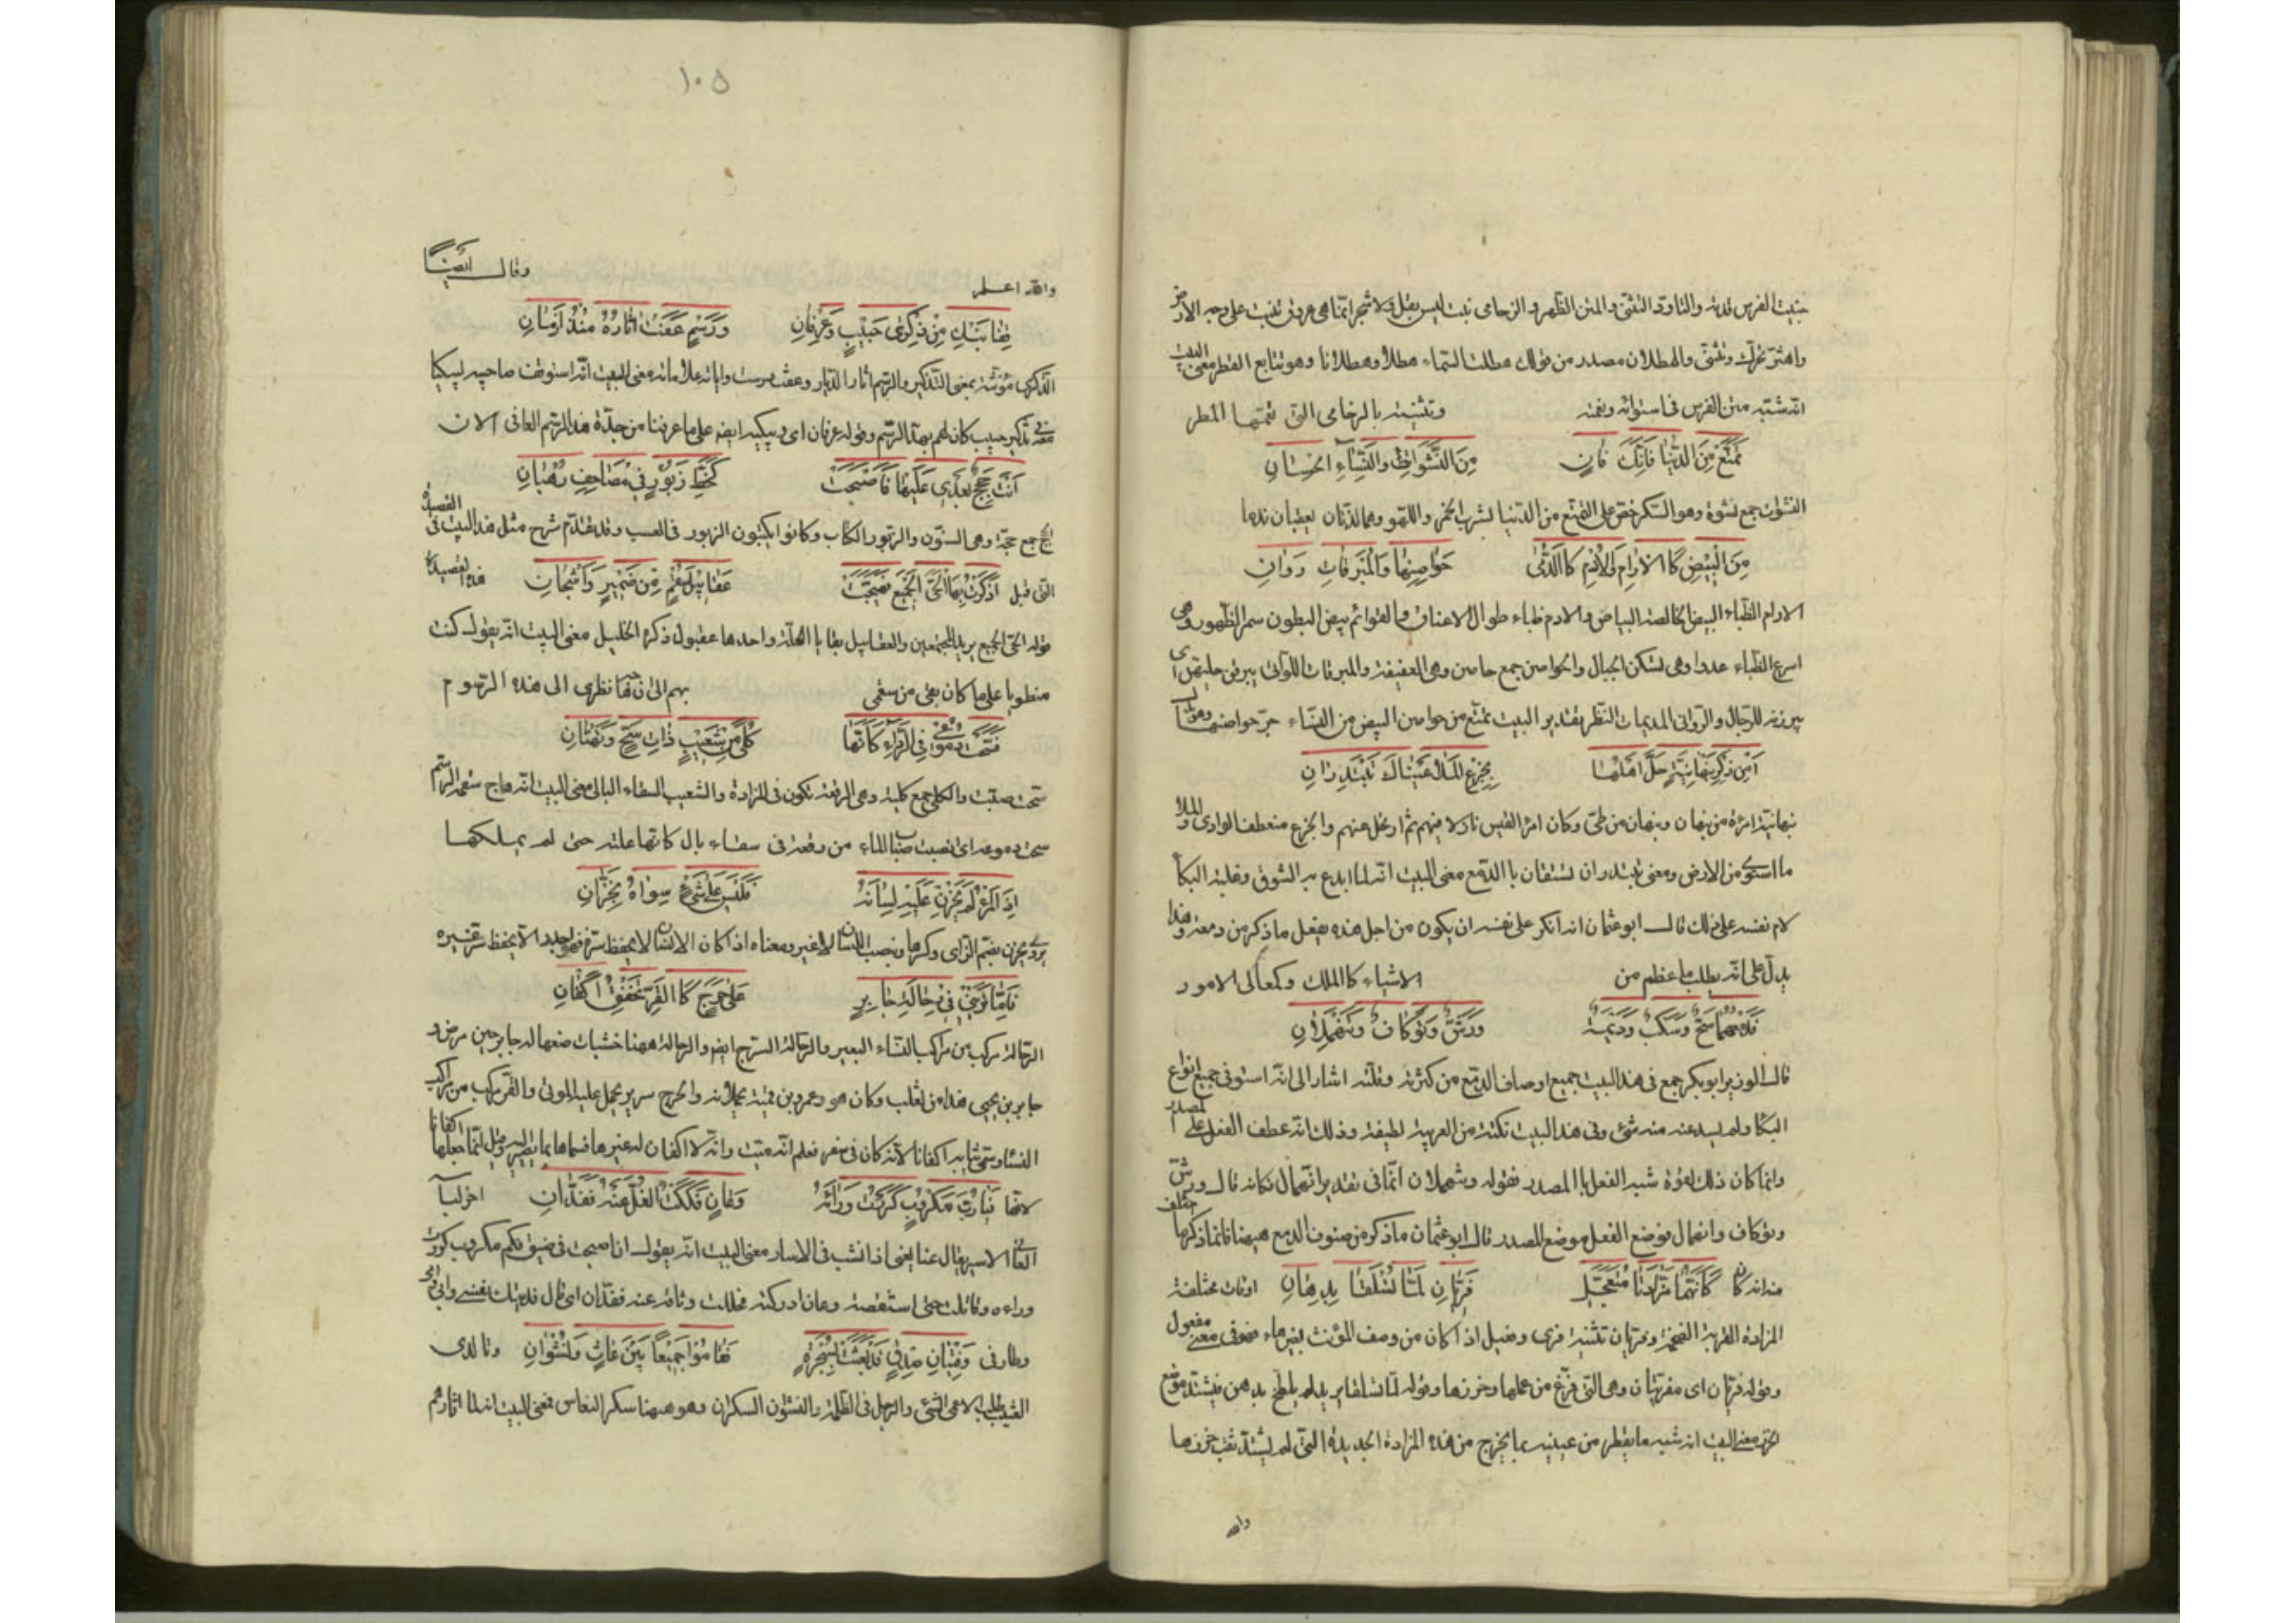 جنبيت الفرس قدته والتاود التثنى والمتن الظهر والرخامى نبت ليس ببقل ولا شجر انما هى عروق تنبت على وجه الارض
واهتز تحرك وتثنى والهطلان مصدر من قولك هطلت السماء هطلا وهطلانا وهو تتابع القطر معنى البيت
انه شبه متن الفرس فى استوائه ونعمته وتثنيته بالرخامى التى نعمتها المطر
تَمَتَّعْ مِنَ الدُّنْيَا فَاِنَّكَ فَانٍ مِنَ النَّشَوَاتِ وَالنِّسَاءِ الْحِسَانِ
النشوات جمع نشوة وهو السكر حض على التمتع من الدنيا بشرب الخمر واللهو وهما لذتان يعقبان ندما
مِنَ الْبِيضِ كَالْاَرَامِ وَالْاُدْمِ كَالدُّمَى حَوَاصِنِهَا وَالْمُبْرِقَاتِ رَوَانِ
الارام الظباء البيض الخالصه البياض والادم ظباء طوال الاعناق والقوائم بيض البطون سمر الظهور وهى
اسرع الظباء عدوا وهى تسكن الجبال والحواصن جمع حاصن وهى العفيفة والمبرقات اللوآتى يبرقن حليهن اى
يبرزنه للرجال والروانى المديمات النظر تقدير البيت تمتع من حواصن البيض من النساء جر حواصنها
اَمِنْ ذِكْرِ نَبْهَانِيَّةٍ حَلَّ اَهْلُهَا بِجِزْعِ الْمَلَا عَيْنَاكَ تَبْتَدِرَانِ
نبهانية امرءة من نبهان ونبهان من طى وكان امرء القيس نازلا فيهم ثم ارتحل عنهم والجزع منعطف الوادى والملا
ما استوى من الارض ومعنى تبتدران تستبقان بالدمع معنى البيت انه لما ابدع به الشوق وغلبه البكا
لام نفسه على ذلك قال ابو عثمان انه انكر على نفسه ان يكون من اجل هذه يفعل ما ذكر من دمعه وهذا
يدل على انه يطلب ما عظم من الاشياء كالملك وكمعالى الامور
فَدَمْعُهُمَا سَحٌّ وَسَكْبٌ وَدِيمَةٌ وَرَشٌّ وَتَوْكَافٌ وَتَنْهَمِلَانِ
قال الوزير ابو بكر جمع فى هذا البيت جميع اوصاف الدمع من كثرته وقلته اشار الى انه استوفى جميع انواع
البكا ولم يسد عنه منه شئ وفى هذا البيت نكتة من العربية لطيفة وذلك انه عطف الفعل على المصدر
وانما كان ذلك لقوة شبه الفعل بالمصدر فقوله وتنهملان انما فى تقدير انهمال فكانه قال ورش
وتوكاف وانهمال فوضع الفعل موضع المصدر قال ابو عثمان ما ذكر من صنوف الدمع هيهنا فانما ذكرها
منه انه كان كَاَنَّهُمَا مَزَادَتَا مُتَعَجِّلٍ فَرِيَّانِ لَمَّا تُسْلَقَا بِدِهَانِ اوقات مختلفة
المزادة القربة الضخمة وفريان تثنية فرى وفعيل اذا كان من وصف المؤنث بغير هاء فهو فى معنى مفعول
وقوله فريان اى مفريتان وهى التى فرغ من عملها وخرزها وقوله لما تسلقا يريد لم يلطخ بدهن فيشتد موضع
الخرز معنى البيت انه شبه ما يقطر من عينيه بما يخرج من هذه المزادة الجديدة التى لم يشتد ثقب خرزها
والله
١٠٥
والله اعلم وقال ايضًا
قِفَا نَبْكِ مِنْ ذِكْرَى حَبِيبٍ وَعِرْفَانِ وَرَسْمٍ عَفَتْ اٰثَارُهُ مُنْذُ اَزْمَانِ
الذكرى مؤنثة بمعنى التذكير والرسم اثار الديار وعفت درست واياته علاماته معنى البيت انه استوقف صاحبيه ليبكيا
معه فى تذكر حبيب كان لهم بهذا الرسم وقوله عرفان اى ويبكيه ايضه على ما عرفنا من جدّة هذا الرسم العافى الان
اَتَتْ حِجَجٌ بَعْدِى عَلَيْهَا فَاَصْبَحَتْ كَخَطِّ زَبُورٍ فِى مَصَاحِفِ رُهْبَانِ
الحجج جمع حجة وهى السنون والزبور الكتاب وكانوا يكتبون الزبور فى العسب وقد تقدم شرح مثل هذا البيت فى القصيدة
التى قبل ذَكَرْتُ بِهَا الْحَىَّ الْجَمِيعَ فَهَيَّجَتْ عَقَابِيلَ سُقْمٍ مِنْ ضَمِيرٍ وَاَشْجَانِ هذه القصيدة
قوله الحى الجميع يريد المجتمعين والعقابيل بقايا العلة واحدها عقبول ذكره الخليل معنى البيت انه يقول كنت
منطويا على ما كان بقى من سقمى بهم الى ان نظرى الى هذه الرسوم
فَسَحَّتْ دُمُوعِى فِى الرِّدَاءِ كَاَنَّهَا كُلًى مِنْ شَعِيبٍ ذَاتِ سَحٍّ وَتَهْتَانِ
سحت صبت والكلى جمع كلية وهى الرقعة تكون فى المزادة والشعيب السقاء البالى معنى البيت انه هاج سقمه الرسم
سحت دموعه اى انصبت صب الماء من رقعة فى سقاء بال كانها علته حتى لم يملكها
اِذَا الْمَرْءُ لَمْ يَخْزُنْ عَلَيْهِ لِسَانَهُ فَلَيْسَ عَلَى شَىْءٍ سِوَاهُ بِخَزَّانِ
يروى يخزن بضم الزاى وكسرها ونصب اللسان لا غير ومعناه اذا كان الانسان لا يحفظ سره فهو اجدر الا يحفظ سر غيره
فَاِمَّا تَرَيْنِى فِى رِحَالَةِ جَابِرٍ عَلَى حَرَجٍ كَالْقَرِّ تَخْفِقُ اَكْفَانِى
الرحالة مركب من مراكب النساء البعير والرحالة السرج ايضه والرحالة ههنا خشبات صنعها له جابر حين مرض و
جابر بن يحيى هذا من تغلب وكان هو وعمرو بن قميئة يحملانه والحرج سرير يحمل عليه الموتى والقر مركب من مراكب
النساء وسمى ثيابه اكفانا لانه كان فى سفر فعلم انه ميت وانه لا اكفان له غيرها فسماها بما يصير وقيل انما جعلها اكفانا
لانها فَيَا رُبَّ مَكْرُوبٍ كَرَرْتُ وَرَاءَهُ وَعَانٍ فَكَكْتُ الْغُلَّ عَنْهُ فَفَدَّانِى اخر لباسه
العانى الاسير يقال عنا يعنى اذا نشب فى الاسار معنى البيت انه يقول ان اصبحت فى ضيق فكم مكروب كررت
وراءه وقاتلت حتى استنقذته وعان ادركته فحللت وثاقه عنه ففدان اى قال فديتك بنفسى وابى وامى
وطارفى وَفِتْيَانِ صِدْقٍ قَدْ بَعَثْتُ بِسُحْرَةٍ فَقَامُوا جَمِيعًا بَيْنَ عَاثٍ وَنَشْوَانِ وتالدى
العيث طلب الاعمى الشئ والرجل فى الظلمة والنشوان السكران وهو ههنا سكر النعاس معنى البيت انه لما اقامهم